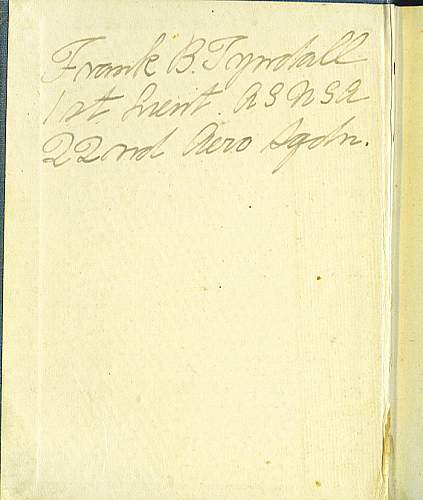 Frank B. Tyndall
1st Lieut. A S U S A
22nd Aero Sqdn.